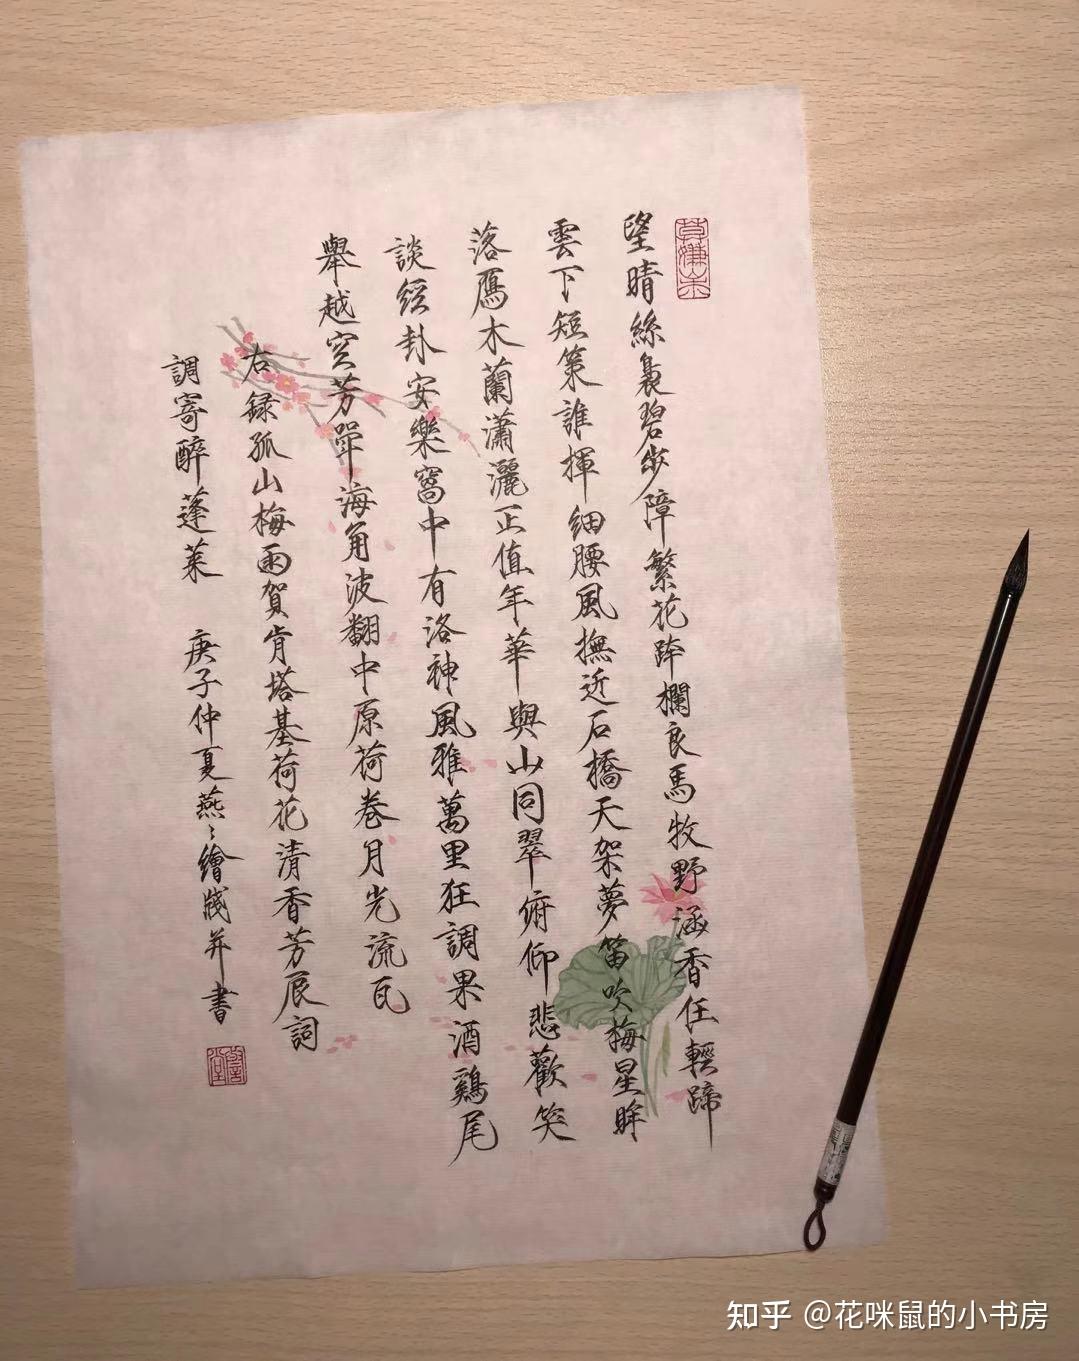 望晴絲裊碧步障繁花陣欄良馬牧野涵香任輕蹄
雲下短策誰揮細腰風撫近石橋天架夢笛吹梅星眸
落雁木蘭瀟灑正值年華與山同翠俯仰悲歡笑
談經卦安樂窩中有洛神風雅萬里狂調果酒鷄尾
舉越空芳罍海角波翻中原荷卷月光流瓦
右録孤山梅雨賀肯塔基荷花清香芳辰詞
調寄醉蓬萊 庚子仲夏燕〻繪牋并書
知乎 @花咪鼠的小书房